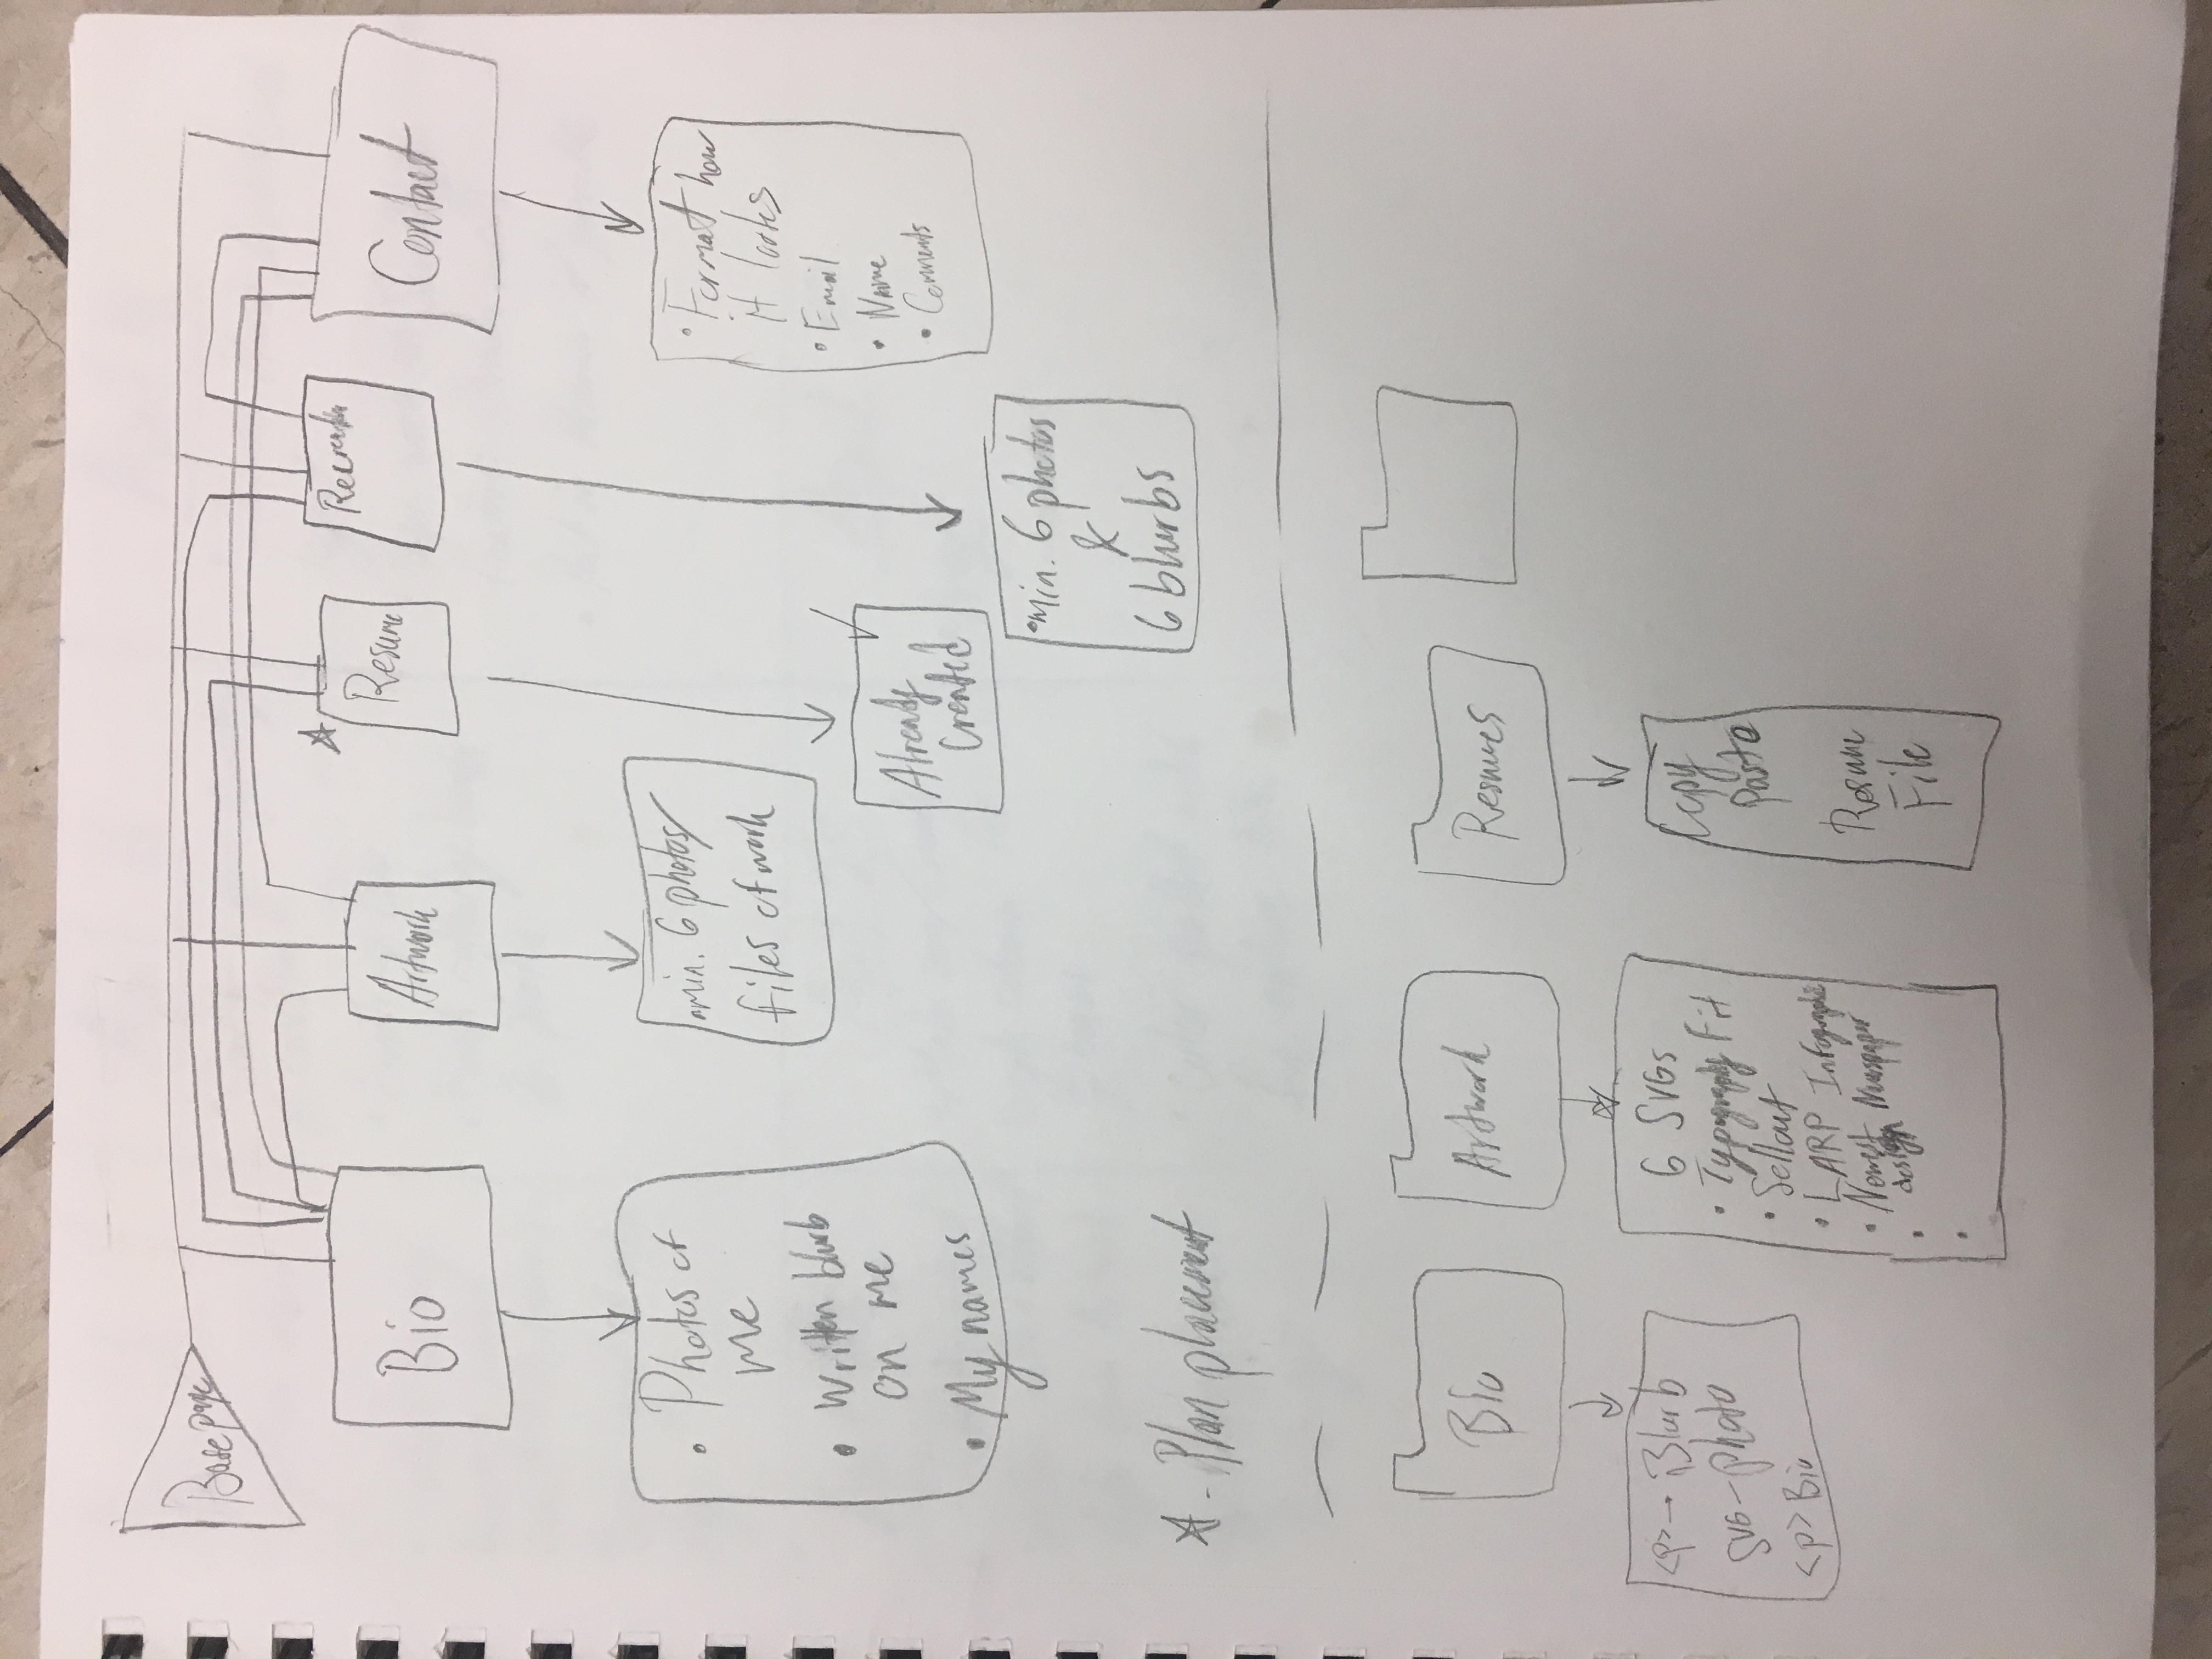 Base page
Bio
Artwork
Resume
Recreation
Contact
• Photos of
me
• Written blurb
on me
• My names
• min. 6 photos/
files of work
Already
Created
• min. 6 photos
&
6 blurbs
• Format how
it looks
• Email
• Name
• Comments
☆ - Plan placement
Bio
Artwork
Resumes
<p> → Blurb
SVG - photo
<p> Bio
6 SVGs
• Typography Fit
• Sellout
• LARP Infographic
• Newest Newspaper
design
•
•
Copy
Paste
Resume
File